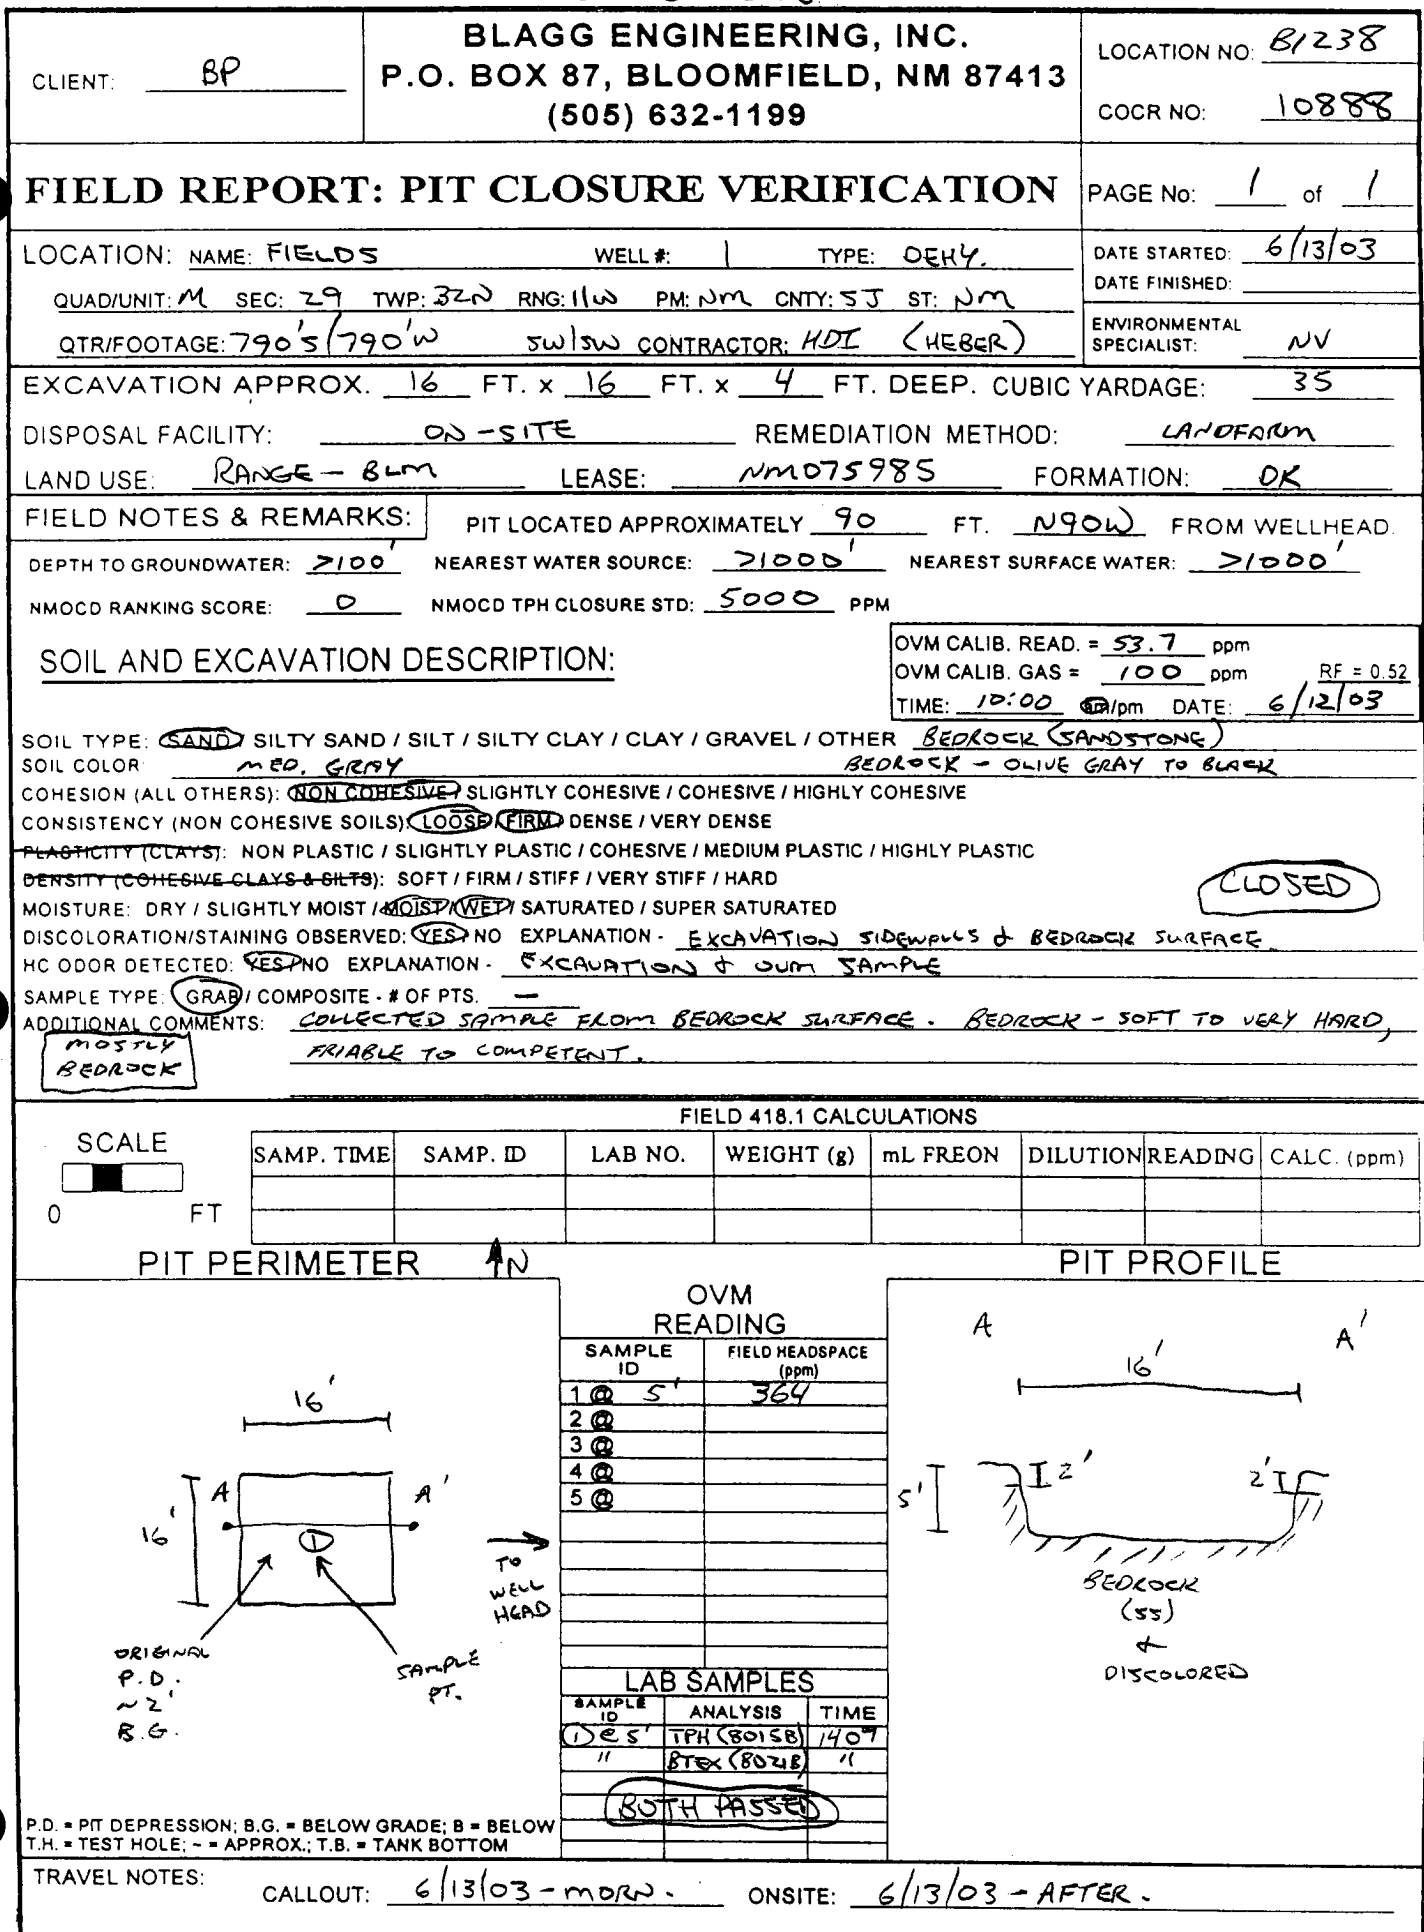 BLAGG ENGINEERING, INC.
P.O. BOX 87, BLOOMFIELD, NM 87413
(505) 632-1199
CLIENT: BP
LOCATION NO: B1238
COCR NO: 10888
FIELD REPORT: PIT CLOSURE VERIFICATION
PAGE No: 1 of 1
LOCATION: NAME: FIELDS WELL #: 1 TYPE: DEHY.
QUAD/UNIT: M SEC: 29 TWP: 32N RNG: 11W PM: NM CNTY: SJ ST: NM
QTR/FOOTAGE: 790'S/790'W SW/SW CONTRACTOR: HDI (HEBER)
DATE STARTED: 6/13/03
DATE FINISHED:
ENVIRONMENTAL
SPECIALIST: NV
EXCAVATION APPROX. 16 FT. x 16 FT. x 4 FT. DEEP. CUBIC YARDAGE: 35
DISPOSAL FACILITY: ON-SITE REMEDIATION METHOD: LANDFARM
LAND USE: RANGE - BLM LEASE: NM075985 FORMATION: DK
FIELD NOTES & REMARKS: PIT LOCATED APPROXIMATELY 90 FT. N90W FROM WELLHEAD.
DEPTH TO GROUNDWATER: >100' NEAREST WATER SOURCE: >1000' NEAREST SURFACE WATER: >1000'
NMOCD RANKING SCORE: 0 NMOCD TPH CLOSURE STD: 5000 PPM
SOIL AND EXCAVATION DESCRIPTION:
OVM CALIB. READ. = 53.7 ppm
OVM CALIB. GAS = 100 ppm RF = 0.52
TIME: 10:00 am/pm DATE: 6/12/03
SOIL TYPE: SAND / SILTY SAND / SILT / SILTY CLAY / CLAY / GRAVEL / OTHER BEDROCK (SANDSTONE)
SOIL COLOR MED. GRAY BEDROCK - OLIVE GRAY TO BLACK
COHESION (ALL OTHERS): NON COHESIVE / SLIGHTLY COHESIVE / COHESIVE / HIGHLY COHESIVE
CONSISTENCY (NON COHESIVE SOILS): LOOSE / FIRM / DENSE / VERY DENSE
PLASTICITY (CLAYS): NON PLASTIC / SLIGHTLY PLASTIC / COHESIVE / MEDIUM PLASTIC / HIGHLY PLASTIC
DENSITY (COHESIVE CLAYS & SILTS): SOFT / FIRM / STIFF / VERY STIFF / HARD
CLOSED
MOISTURE: DRY / SLIGHTLY MOIST / MOIST / WET / SATURATED / SUPER SATURATED
DISCOLORATION/STAINING OBSERVED: YES / NO EXPLANATION - EXCAVATION SIDEWALLS & BEDROCK SURFACE
HC ODOR DETECTED: YES / NO EXPLANATION - EXCAVATION & OVM SAMPLE
SAMPLE TYPE: GRAB / COMPOSITE - # OF PTS. -
ADDITIONAL COMMENTS: COLLECTED SAMPLE FROM BEDROCK SURFACE. BEDROCK - SOFT TO VERY HARD,
FRIABLE TO COMPETENT.
MOSTLY
BEDROCK
FIELD 418.1 CALCULATIONS
SCALE
0 FT
SAMP. TIME SAMP. ID LAB NO. WEIGHT (g) mL FREON DILUTION READING CALC. (ppm)
PIT PERIMETER N
16'
16'
A A'
1
TO
WELL
HEAD
ORIGINAL
P.D.
~2'
B.G.
SAMPLE
PT.
P.D. = PIT DEPRESSION; B.G. = BELOW GRADE; B = BELOW
T.H. = TEST HOLE; ~ = APPROX.; T.B. = TANK BOTTOM
OVM
READING
SAMPLE
ID
FIELD HEADSPACE
(ppm)
1 @ 5' 364
2 @
3 @
4 @
5 @
LAB SAMPLES
SAMPLE
ID
ANALYSIS TIME
1 @ 5' TPH (8015B) 1407
" BTEX (8021B) "
BOTH PASSED
PIT PROFILE
A A'
16'
2' 2'
5'
BEDROCK
(SS)
&
DISCOLORED
TRAVEL NOTES: CALLOUT: 6/13/03 - MORN. ONSITE: 6/13/03 - AFTER.